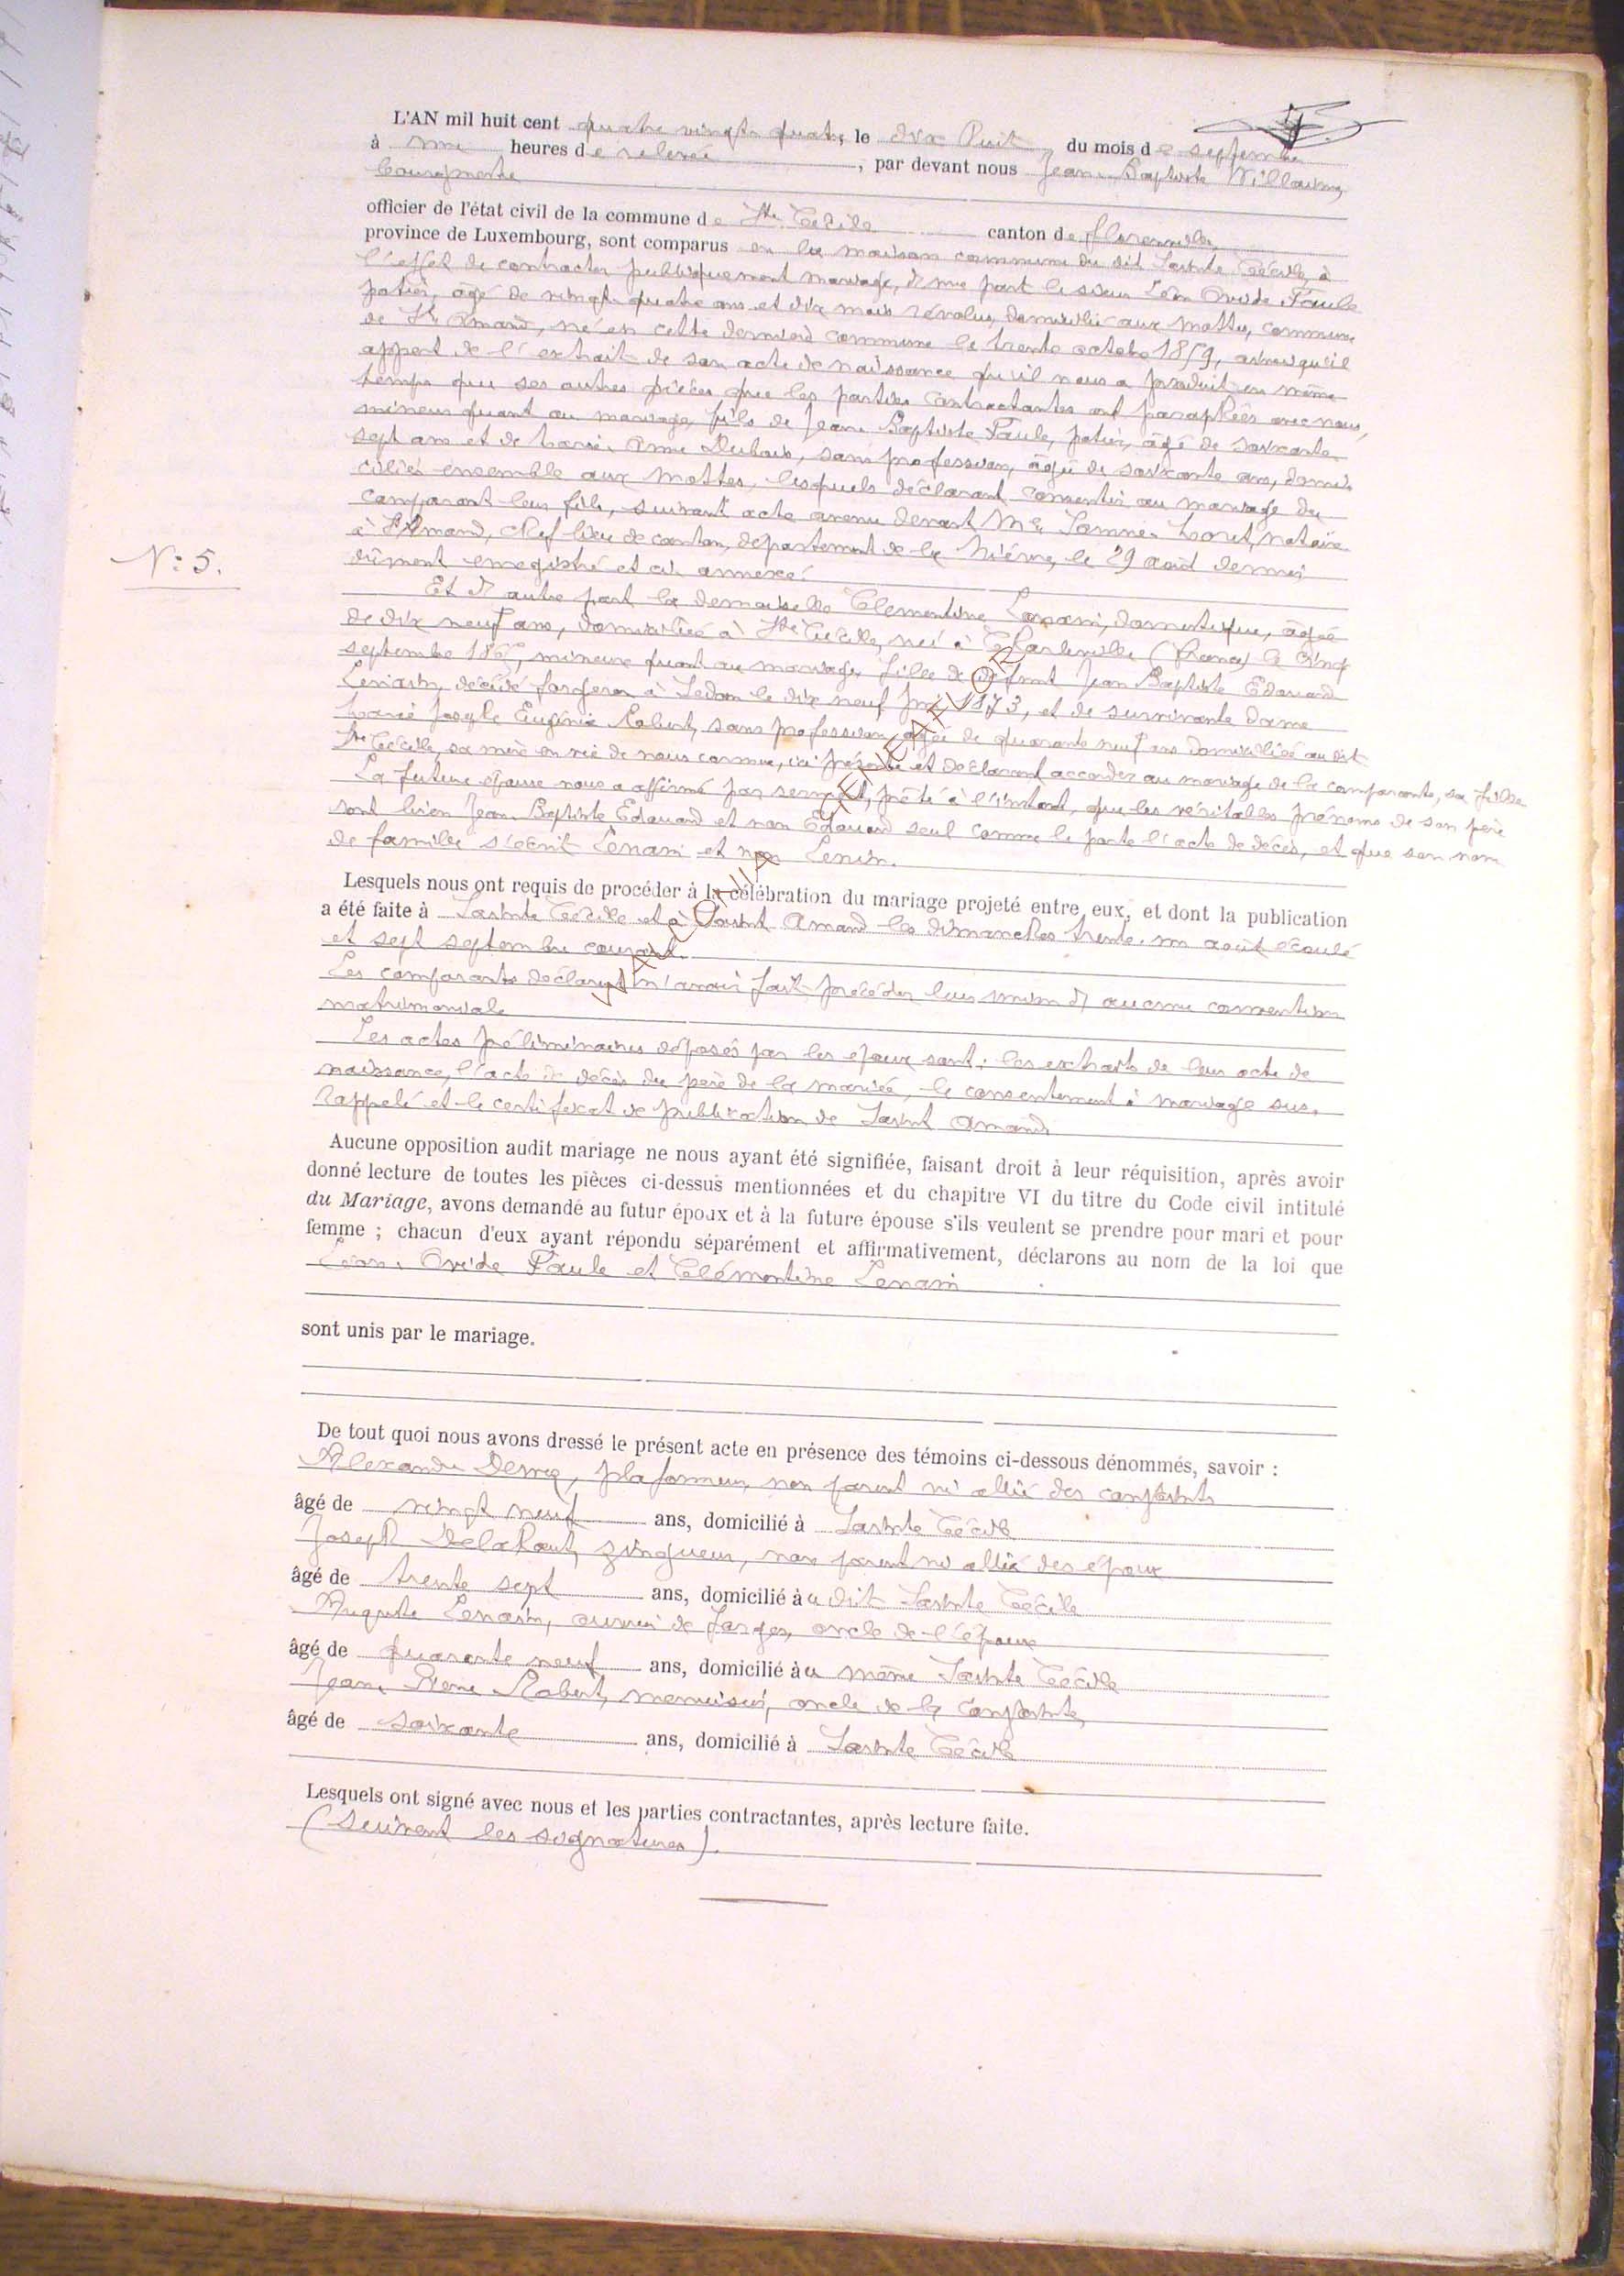 L'AN mil huit cent quatre vingt quatre, le dix huit du mois de septembre
à une heures de relevée, par devant nous Jean Baptiste Willaume,
bourgmestre
officier de l'état civil de la commune de Ste Cécile canton de florenville
province de Luxembourg, sont comparus en la maison commune du dit Sainte Cécile, à
l'effet de contracter publiquement mariage, d'une part le sieur Léon Ovide Paule
potier, âgé de vingt-quatre ans et dix mois révolus, domicilié aux Mottes, commune
de St Amand, né en cette dernière commune le trente octobre 1859, ainsi qu'il
appert de l'extrait de son acte de naissance qu'il nous a produit en même
temps que ses autres pièces que les parties contractantes ont paraphées avec nous,
mineur quant au mariage, fils de Jean Baptiste Paule, potier, âgé de soixante
sept ans et de Marie Anne Dubois, sans profession, âgée de soixante ans, domi-
ciliés ensemble aux Mottes, lesquels déclarant consentir au mariage du
comparant leur fils, suivant acte avenu devant Me notaire
à St Amand, chef lieu de canton, département de la Nièvre, le 29 août dernier
dûment enregistré et ci annexé.
N: 5.
Et d'autre part la demoiselle Clementine Lenain, domestique, âgée
de dix neuf ans, domiciliée à Ste Cécile, née à Charleville (France) le cinq
septembre mineure quant au mariage, fille de défunt Jean Baptiste Edouard
Lenain, décédé forgeron à Sedan le dix neuf 1873, et de survivante dame
Marie Josèphe Eugénie Robert, sans profession, âgée de quarante neuf ans domiciliée au dit
Ste Cécile, sa mère en vie de nous connue, ici présente et déclarant accorder au mariage de la comparante, sa fille
La future épouse nous a affirmé par serment, prêté à l'instant, que les véritables prénoms de son père
sont bien Jean Baptiste Edouard et non Edouard seul comme le porte l'acte de décès, et que son nom
de famille s'écrit Lenain et non Lenin.
Lesquels nous ont requis de procéder à la célébration du mariage projeté entre eux, et dont la publication
a été faite à Sainte Cécile et à Saint Amand les dimanches trente-un août écoulé
et sept septembre courant.
Les comparants déclarent n'avoir fait précéder leur union d'aucune convention
matrimoniale
Les actes préliminaires déposés par les époux sont: les extraits de leur acte de
naissance, l'acte de décès du père de la mariée, le consentement à mariage sus-
rappelé et le certificat de publication de Saint Amand
Aucune opposition audit mariage ne nous ayant été signifiée, faisant droit à leur réquisition, après avoir
donné lecture de toutes les pièces ci-dessus mentionnées et du chapitre VI du titre du Code civil intitulé
du Mariage, avons demandé au futur époux et à la future épouse s'ils veulent se prendre pour mari et pour
femme ; chacun d'eux ayant répondu séparément et affirmativement, déclarons au nom de la loi que
Léon Ovide Paule et Clémentine Lenain
sont unis par le mariage.
De tout quoi nous avons dressé le présent acte en présence des témoins ci-dessous dénommés, savoir :
Alexandre non parent ni allié des conjoints
âgé de vingt neuf ans, domicilié à Sainte Cécile
Joseph Delahaut, zingueur, non parent ni allié des époux
âgé de trente sept ans, domicilié àu dit Sainte Cécile
Auguste Lenain, ouvrier de forges, oncle de l'épouse
âgé de quarante neuf ans, domicilié àu même Sainte Cécile
Jean Pierre Robert, menuisier, oncle de la conjointe,
âgé de soixante ans, domicilié à Sainte Cécile
Lesquels ont signé avec nous et les parties contractantes, après lecture faite.
(Suivent les signatures).